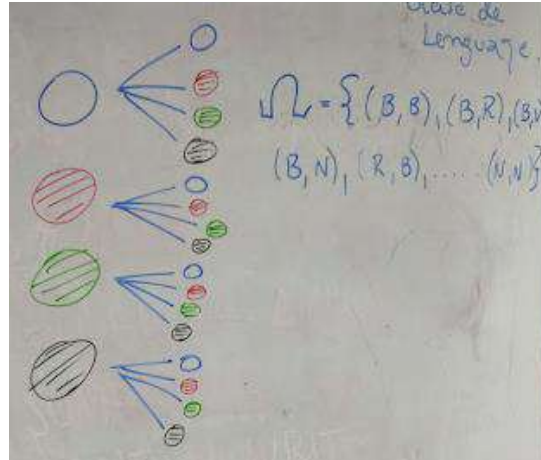 Clase de
Lenguage.
Ω = {(B,B), (B,R), (B,V
(B,N), (R,B), ..... (N,N)}